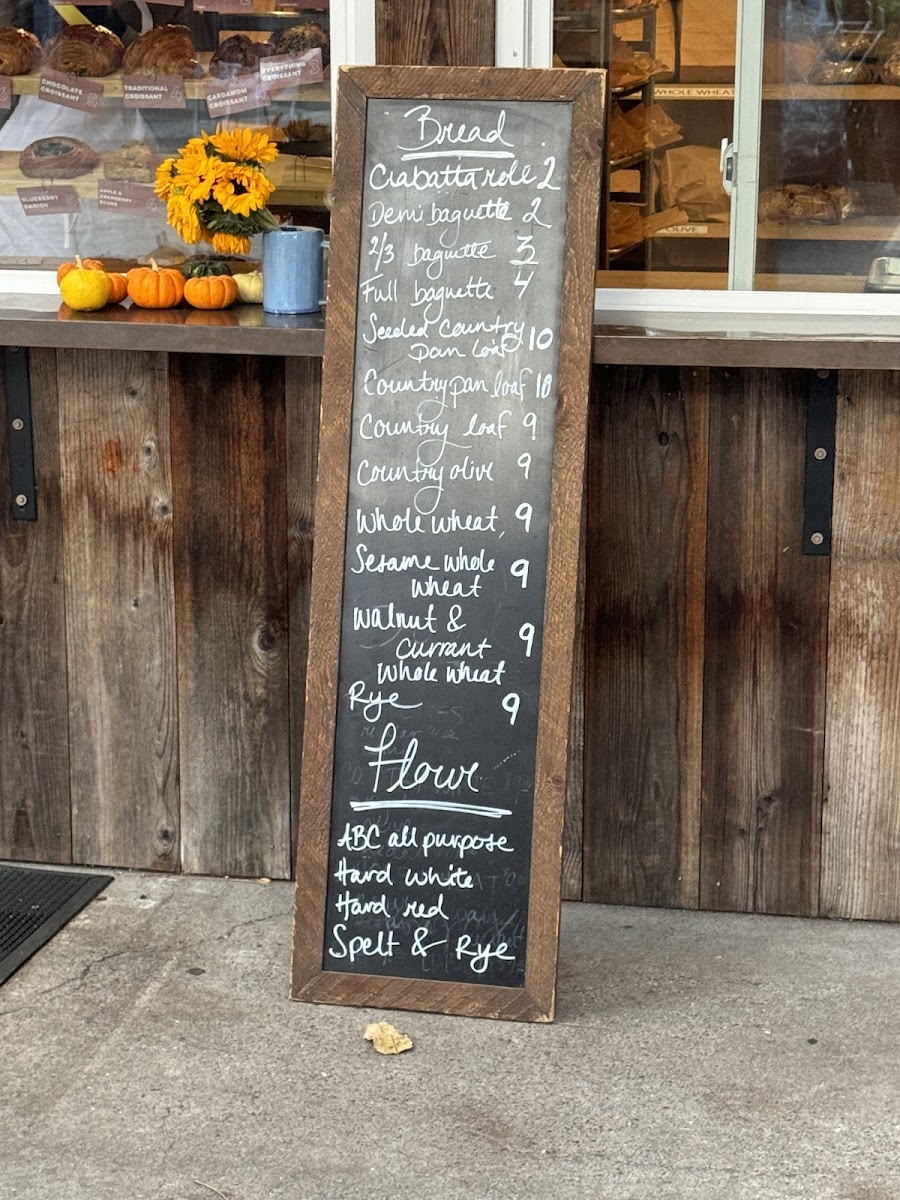 CHOCOLATE
CROISSANT
TRADITIONAL
CROISSANT 4
CARDAMOM
CROISSANT
EVERYTHING
CROISSANT 3
BLUEBERRY
DANISH
APPLE &
CRANBERRY
SCONE
WHOLE WHEAT
OLIVE
Bread
Ciabatta roll 2
Demi baguette 2
2/3 baguette 3
Full baguette 4
Seeded Country
Pan Loaf 10
Country pan loaf 10
Country loaf 9
Country olive 9
Whole wheat 9
Sesame whole
wheat 9
Walnut &
Currant 9
Whole wheat
Rye 9
Flour
ABC all purpose
Hard white
Hard red
Spelt & Rye